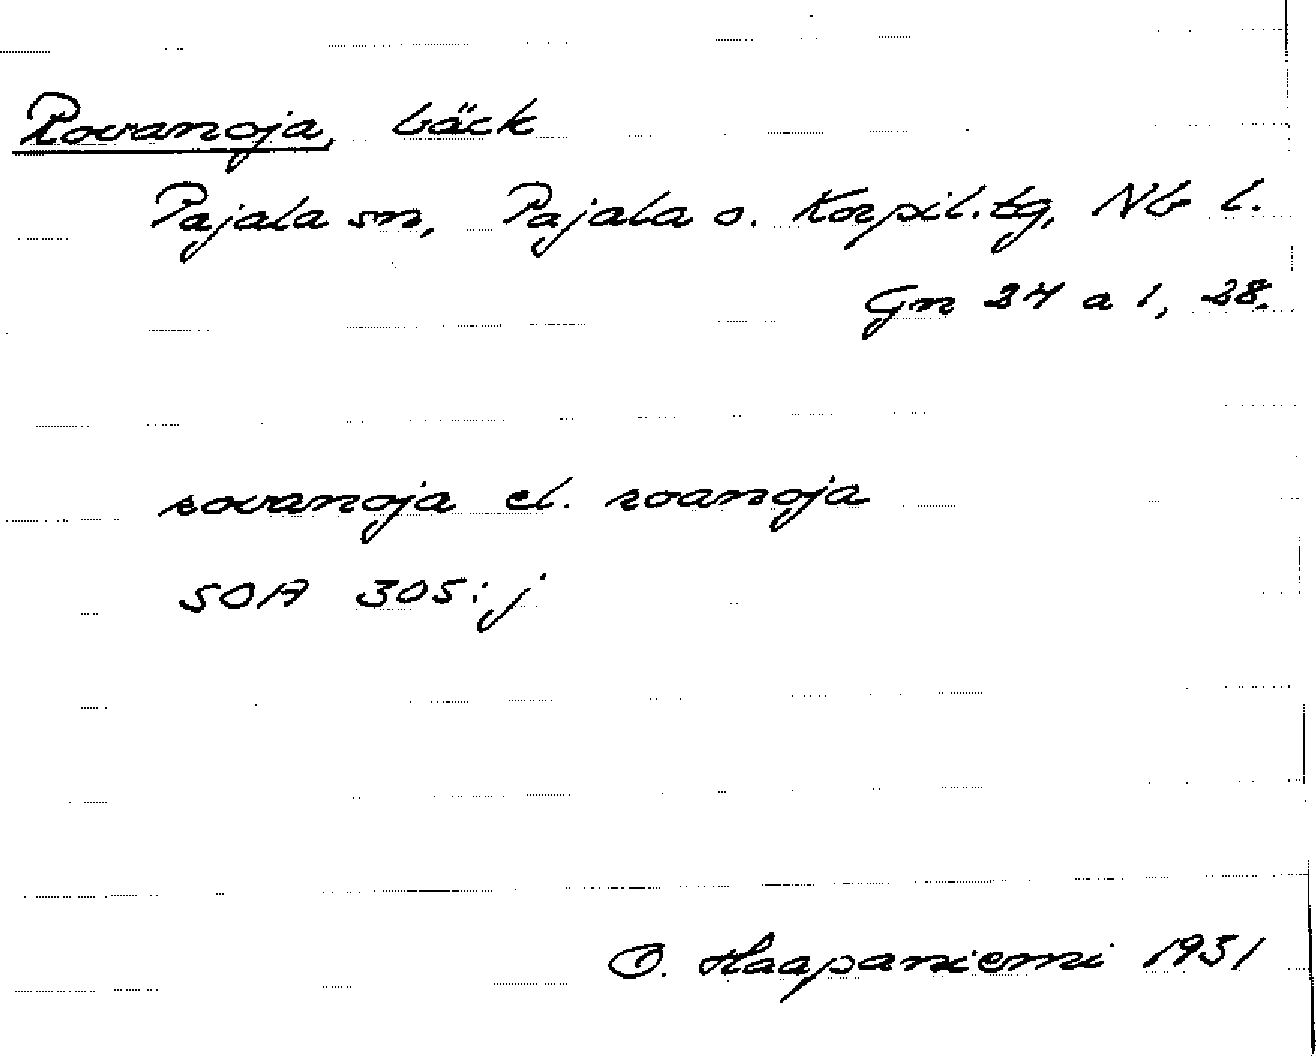 Rovanoja, bäck
Pajala sn, Pajala o. Korpil. tg, Nb l.
Gn 24 a 1, 28.
rovanoja el. roanoja
SOA 305:j
O. Haapaniemi 1951